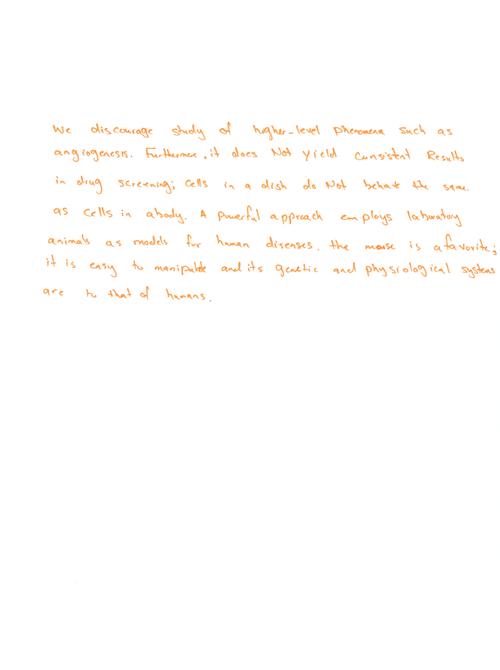 We discourage study of higher-level phenomena such as
angiogenesis. Furthermore, it does Not yield consistent Results
in drug screening; cells in a dish do Not behave the same
as cells in a body. A powerful approach employs laboratory
animals as models for human diseases. the mouse is a favorite;
it is easy to manipulate and its genetic and physiological systems
are to that of humans.